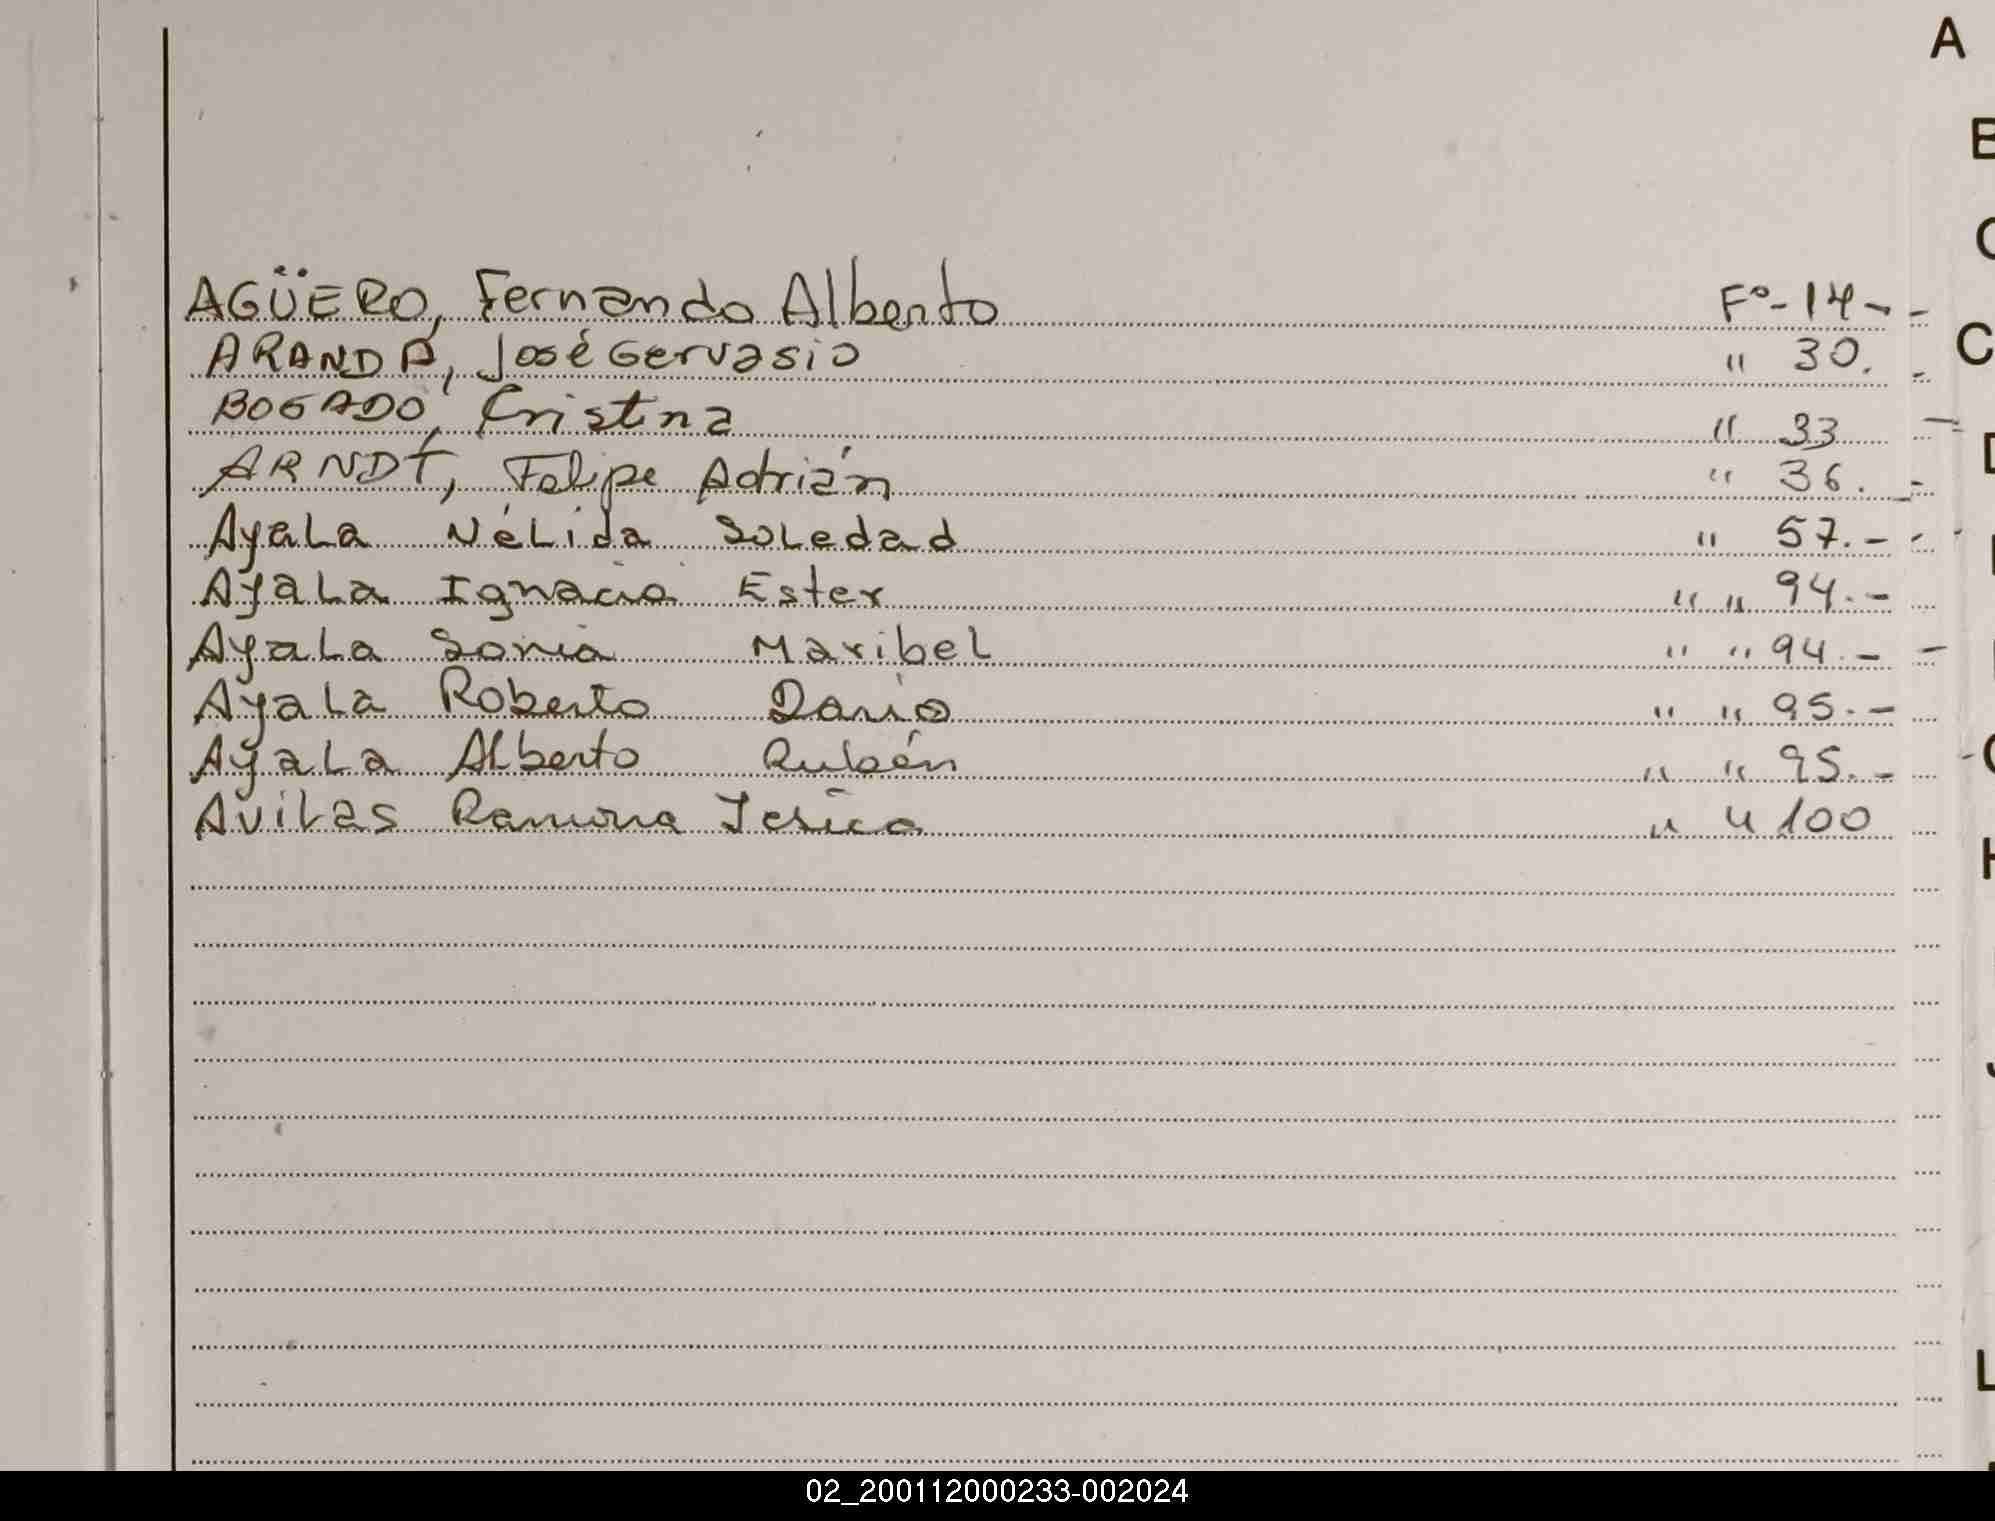 A
B
C
AGÜERO, Fernando Alberto Fº-14--
ARANDA, José Gervasio " 30.-
C
BOGADO, Cristina " 33 -
ARNDT, Felipe Adrián " 36.-
D
Ayala Nélida Soledad " 57.--
Ayala Ignacia Ester " " 94.-
Ayala Sonia Maribel " " 94.--
Ayala Roberto Dario " " 95.-
Ayala Alberto Rubén " " 95.-
Avilas Ramona Jesica " " 100
H
J
L
02_200112000233-002024